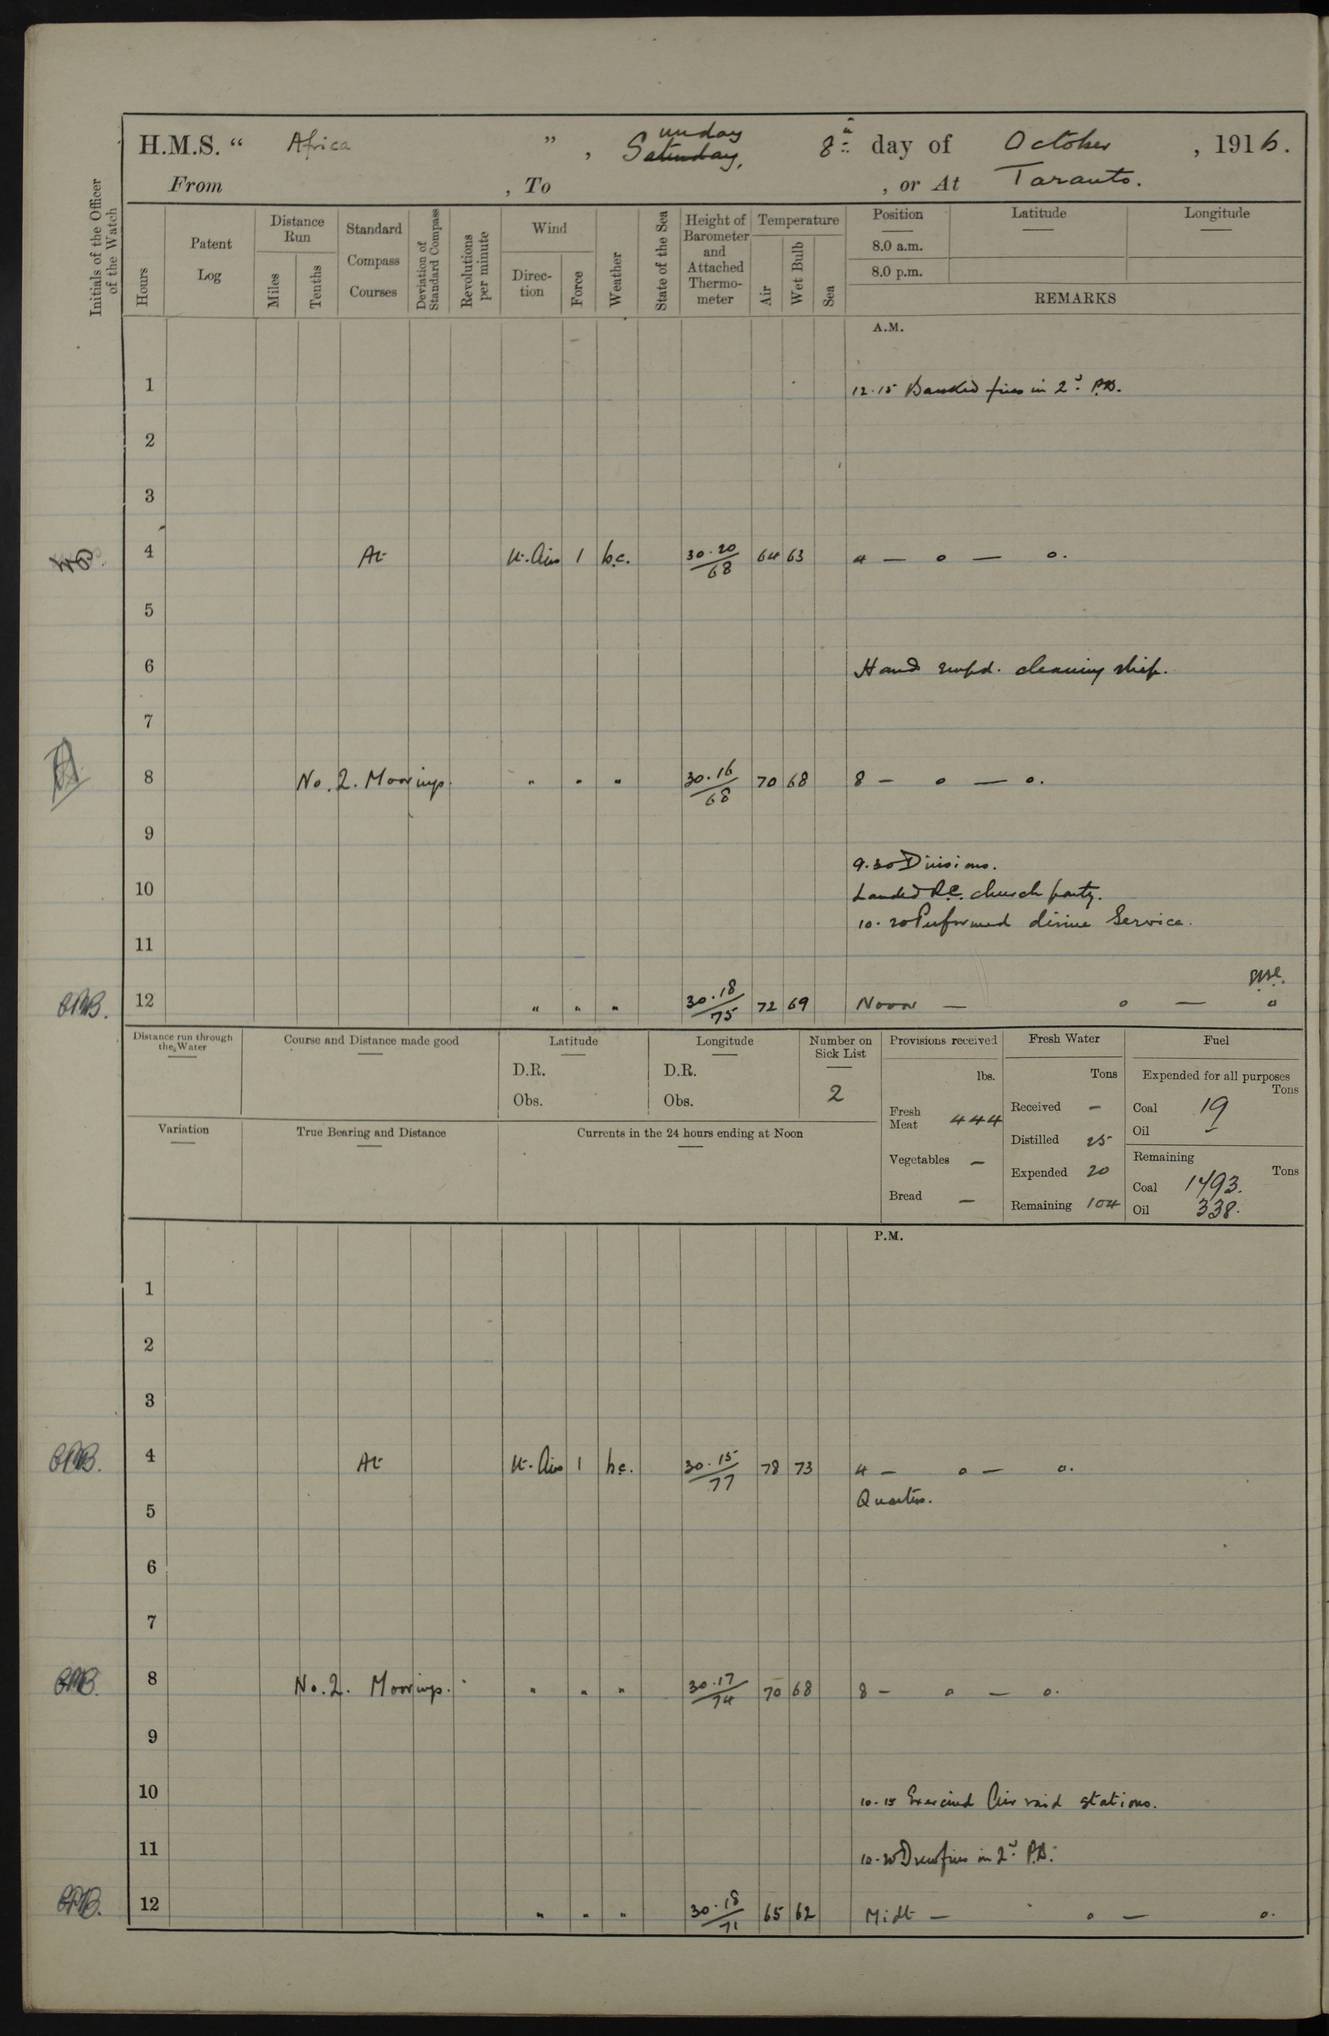 H.M.S. “ Africa ”, Saturday, unday 8th day of October, 1916.
From , To , or At Taranto.
Initials of the Officer of the Watch
Hours
Patent Log
Distance Run
Miles
Tenths
Standard Compass Courses
Deviation of Standard Compass
Revolutions per minute
Wind
Direction
Force
Weather
State of the Sea
Height of Barometer and Attached Thermometer
Temperature
Air
Wet Bulb
Sea
Position
Latitude
Longitude
8.0 a.m.
8.0 p.m.
REMARKS
A.M.
1 12.15 Banked fires in 2nd P.B.
2
3
4 At Lt. Airs 1 b.c. 30.20/68 64 63 4 — o — o.
5
6 Hands empd. cleaning ship.
7
8 No. 2. Moorings. " " " 30.16/68 70 68 8 — o — o.
9
9.30 Divisions.
10 Landed R.C. church party.
10.20 Performed divine Service.
11
12 " " " 30.18/75 72 69 Noon — o — o
Distance run through the Water
Course and Distance made good
Latitude
D.R.
Obs.
Longitude
D.R.
Obs.
Number on Sick List
2
Variation
True Bearing and Distance
Currents in the 24 hours ending at Noon
Provisions received
lbs.
Fresh Meat 444
Vegetables —
Bread —
Fresh Water
Tons
Received —
Distilled 25
Expended 20
Remaining 104
Fuel
Expended for all purposes
Tons
Coal 19
Oil —
Remaining
Tons
Coal 1493.
Oil 338.
P.M.
1
2
3
4 At Lt. Airs 1 b.c. 30.15/77 78 73 4 — o — o.
Quarters.
5
6
7
8 No. 2. Moorings. " " " 30.17/74 70 68 8 — o — o.
9
10 10.15 Exercised Air raid stations.
11 10.20 Drew fires in 2nd P.B.
12 " " " 30.18/71 65 62 Midt — o — o.